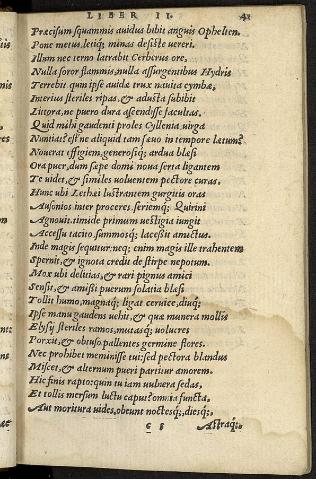 LIBER II. 41
Præcisum squammis auidus bibit anguis Ophelten.
Pone metus, letiq; minas desiste uereri.
Illum nec terno latrabit Cerberus ore,
Nulla soror flammis, nulla assurgentibus Hydris
Terrebit. quin ipse auidæ trux nauita cymbæ,
Interius steriles ripas, & adusta subibit
Littora, ne puero dura ascendisse facultas.
Quid mihi gaudenti proles Cyllenia uirga
Nuntiat? est ne aliquid tam sæuo in tempore lætum?
Nouerat effigiem, generosiq; ardua blæsi
Ora puer, dum sæpe domi noua serta ligantem
Te uidet, & similes uoluentem pectore curas,
Hunc ubi Lethæi lustrantem gurgitis oras
Ausonios inter proceres, seriemq; Quirini
Agnouit, timide primum uestigia iungit
Accessu tacito, summosq; lacessit amictus.
Inde magis sequitur; neq; enim magis ille trahentem
Spernit, & ignota credit de stirpe nepotum.
Mox ubi delitias, & rari pignus amici
Sensit, & amissi puerum solatia blæsi
Tollit humo, magnaq; ligat ceruice, diuq;
Ipse manu gaudens uehit, & quæ munera mollis
Elysij steriles ramos, mutasq; uolucres
Porxit, & obtuso pallentes germine flores.
Nec prohibet meminisse tui: sed pectora blandus
Miscet, & alternum pueri partitur amorem.
Hic finis rapto: quin tu iam uulnera sedas,
Et tollis mersum luctu caput? omnia functa,
Aut moritura uides, obeunt noctesq;, diesq;,
Astraq;